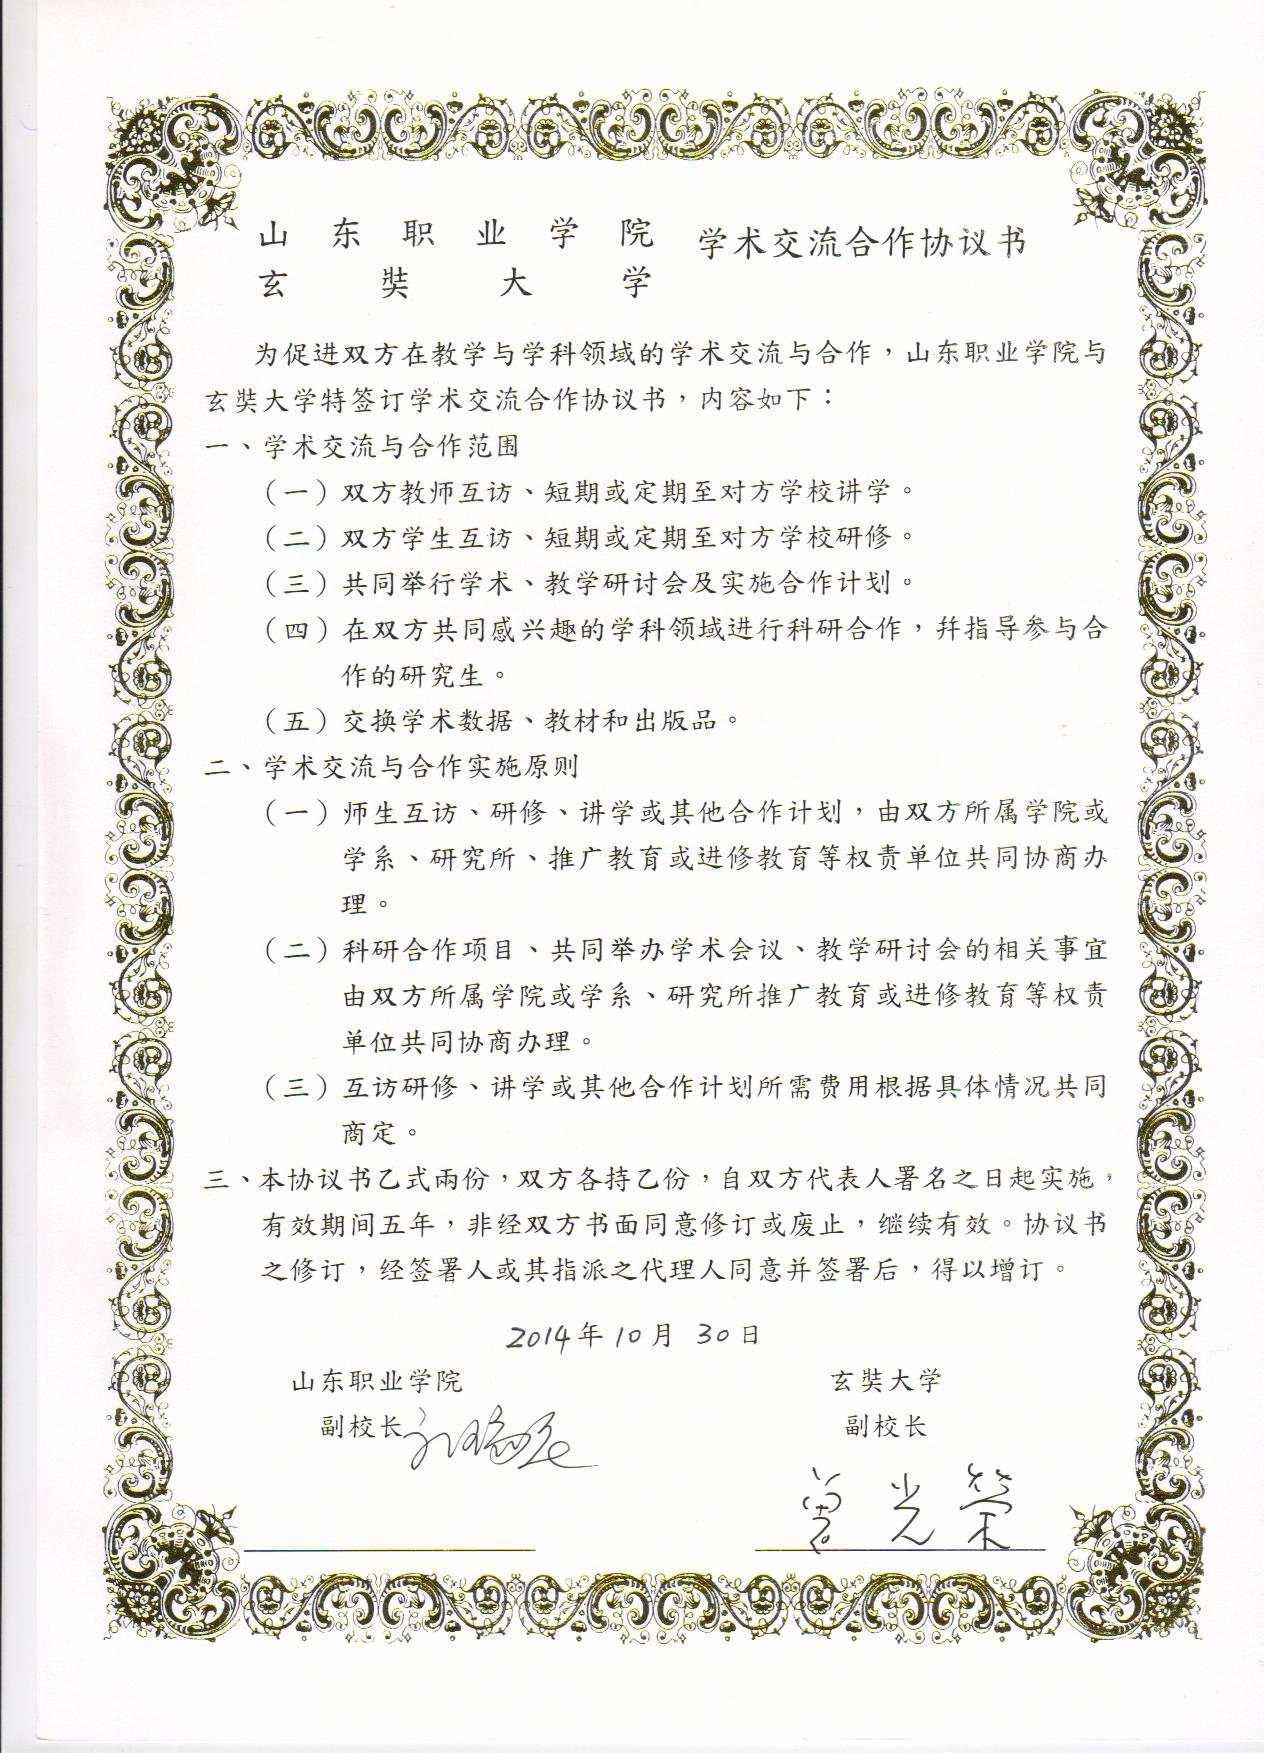 山东职业学院 学术交流合作协议书
玄奘大学
为促进双方在教学与学科领域的学术交流与合作，山东职业学院与
玄奘大学特签订学术交流合作协议书，内容如下：
一、学术交流与合作范围
（一）双方教师互访、短期或定期至对方学校讲学。
（二）双方学生互访、短期或定期至对方学校研修。
（三）共同举行学术、教学研讨会及实施合作计划。
（四）在双方共同感兴趣的学科领域进行科研合作，并指导参与合
作的研究生。
（五）交换学术数据、教材和出版品。
二、学术交流与合作实施原则
（一）师生互访、研修、讲学或其他合作计划，由双方所属学院或
学系、研究所、推广教育或进修教育等权责单位共同协商办
理。
（二）科研合作项目、共同举办学术会议、教学研讨会的相关事宜
由双方所属学院或学系、研究所推广教育或进修教育等权责
单位共同协商办理。
（三）互访研修、讲学或其他合作计划所需费用根据具体情况共同
商定。
三、本协议书乙式兩份，双方各持乙份，自双方代表人署名之日起实施，
有效期间五年，非经双方书面同意修订或废止，继续有效。协议书
之修订，经签署人或其指派之代理人同意并签署后，得以增订。
2014年10月30日
山东职业学院 玄奘大学
副校长 副校长
曾光荣